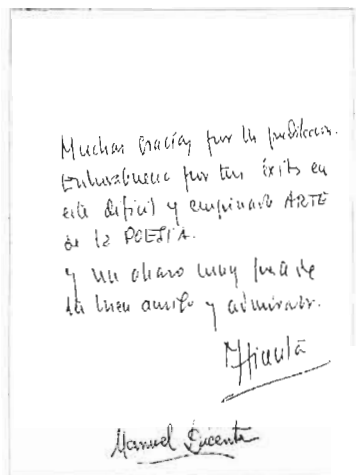 Muchas gracias por tu predilección.
Enhorabuena por tus éxitos en
este difícil y empinado ARTE
de la POESIA.
y un abrazo muy fuerte de
tu buen amigo y admirador.
Manuel